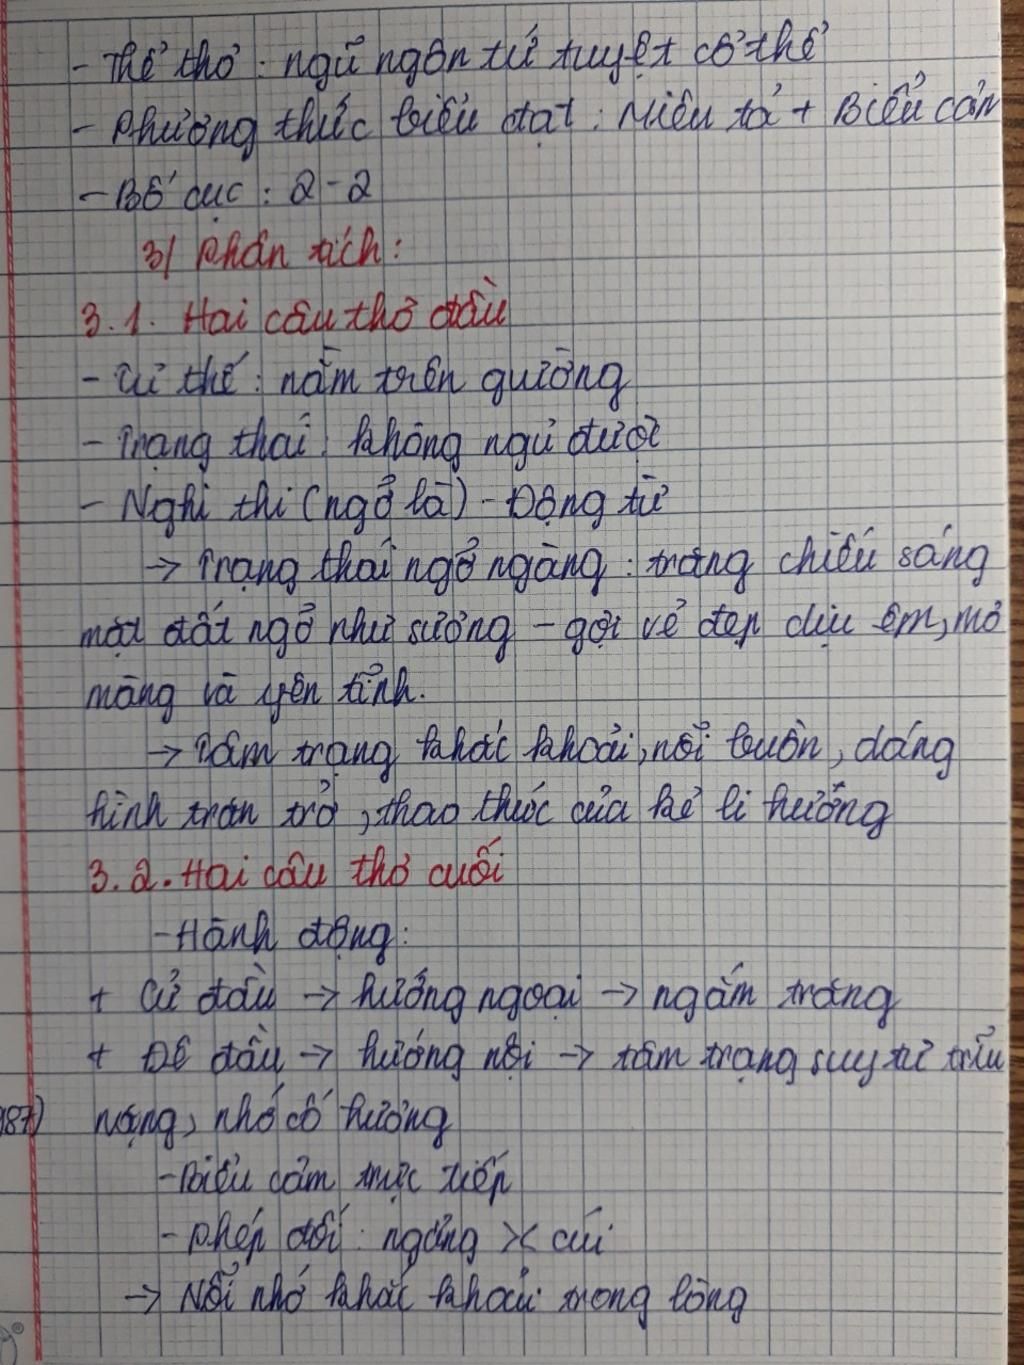 - Thể thơ : ngũ ngôn tứ tuyệt cổ thể
- Phương thức biểu đạt : Miêu tả + Biểu cảm
- Bố cục : 2 - 2
3/ Phân tích :
3.1. Hai câu thơ đầu
- Tư thế : nằm trên giường
- Trạng thái : không ngủ được
- Nghi thị (ngỡ là) - Động từ
→ Trạng thái ngỡ ngàng : trăng chiếu sáng
mặt đất ngỡ như sương - gợi vẻ đẹp dịu êm, mơ
màng và yên tĩnh.
→ Tâm trạng khắc khoải, nỗi buồn, dáng
hình trằn trở, thao thức của kẻ li hương
3.2. Hai câu thơ cuối
- Hành động :
+ Cử đầu → hướng ngoại → ngắm trăng
+ Đê đầu → hướng nội → tâm trạng suy tư trĩu
nặng, nhớ cố hương
- Biểu cảm trực tiếp
- Phép đối : ngẩng X cúi
→ Nỗi nhớ khắc khoải trong lòng